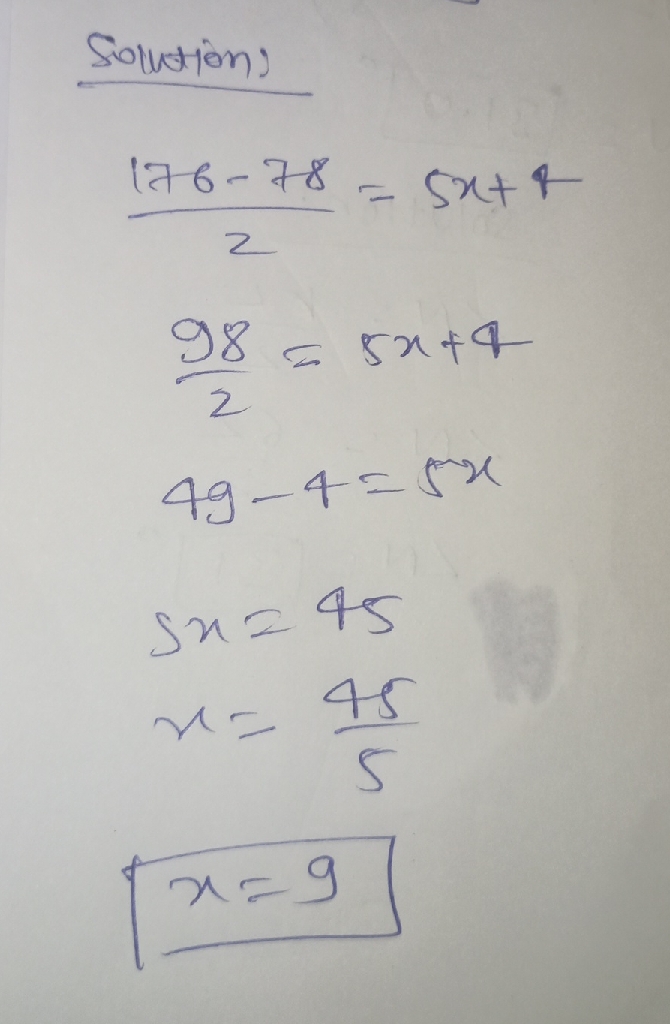 Solution:
176-78 = 5x+4
2
98 = 5x+4
2
49-4=5x
5x=45
x= 45
5
x=9